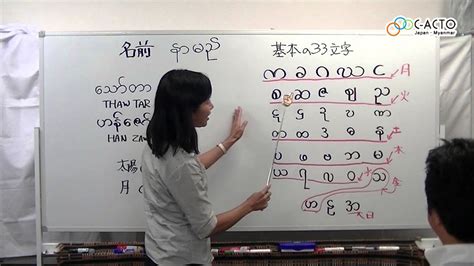 C-ACTO
Japan - Myanmar
名前 နာမည်
基本の33文字
သော်တာ
THAW TAR
HAN ZA
太陽
月
က ခ ဂ ဃ င 月
စ ဆ ဇ ဈ ည 火
ဋ ဌ ဍ ဎ ဏ
တ ထ ဒ ဓ န 土
ပ ဖ ဗ ဘ မ 木
ယ ရ လ ဝ သ 金
ဟ ဠ အ 日